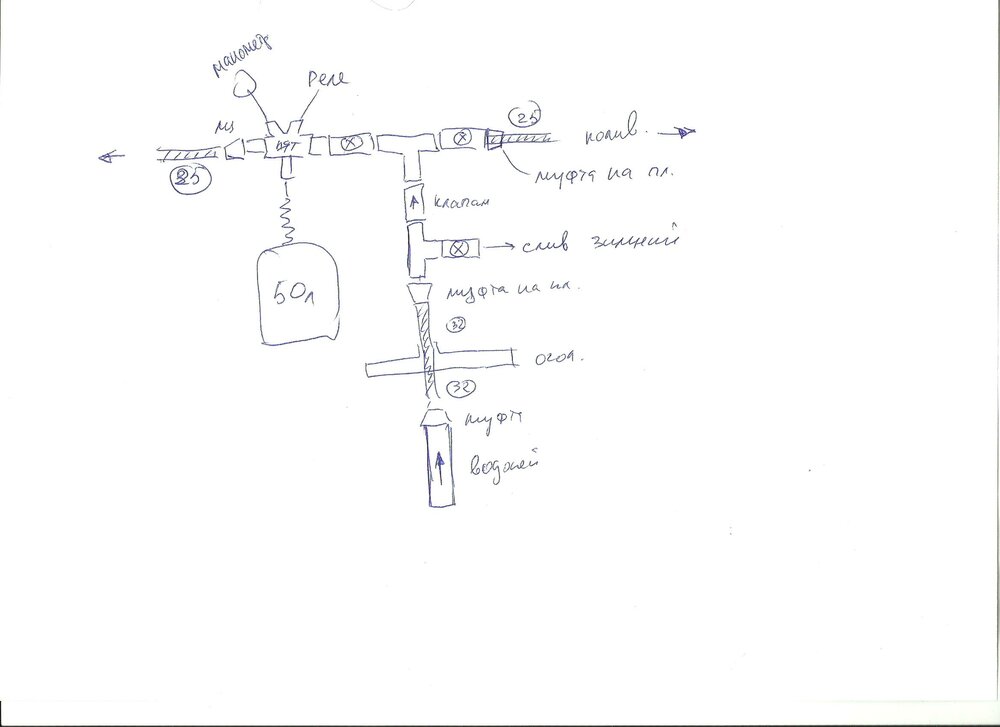 маномер
Реле
25
мз
пят
полив.
25
муфта на пл.
клапан
слив зимний
50л
муфта на пл.
32
огол.
32
муфта
водолей